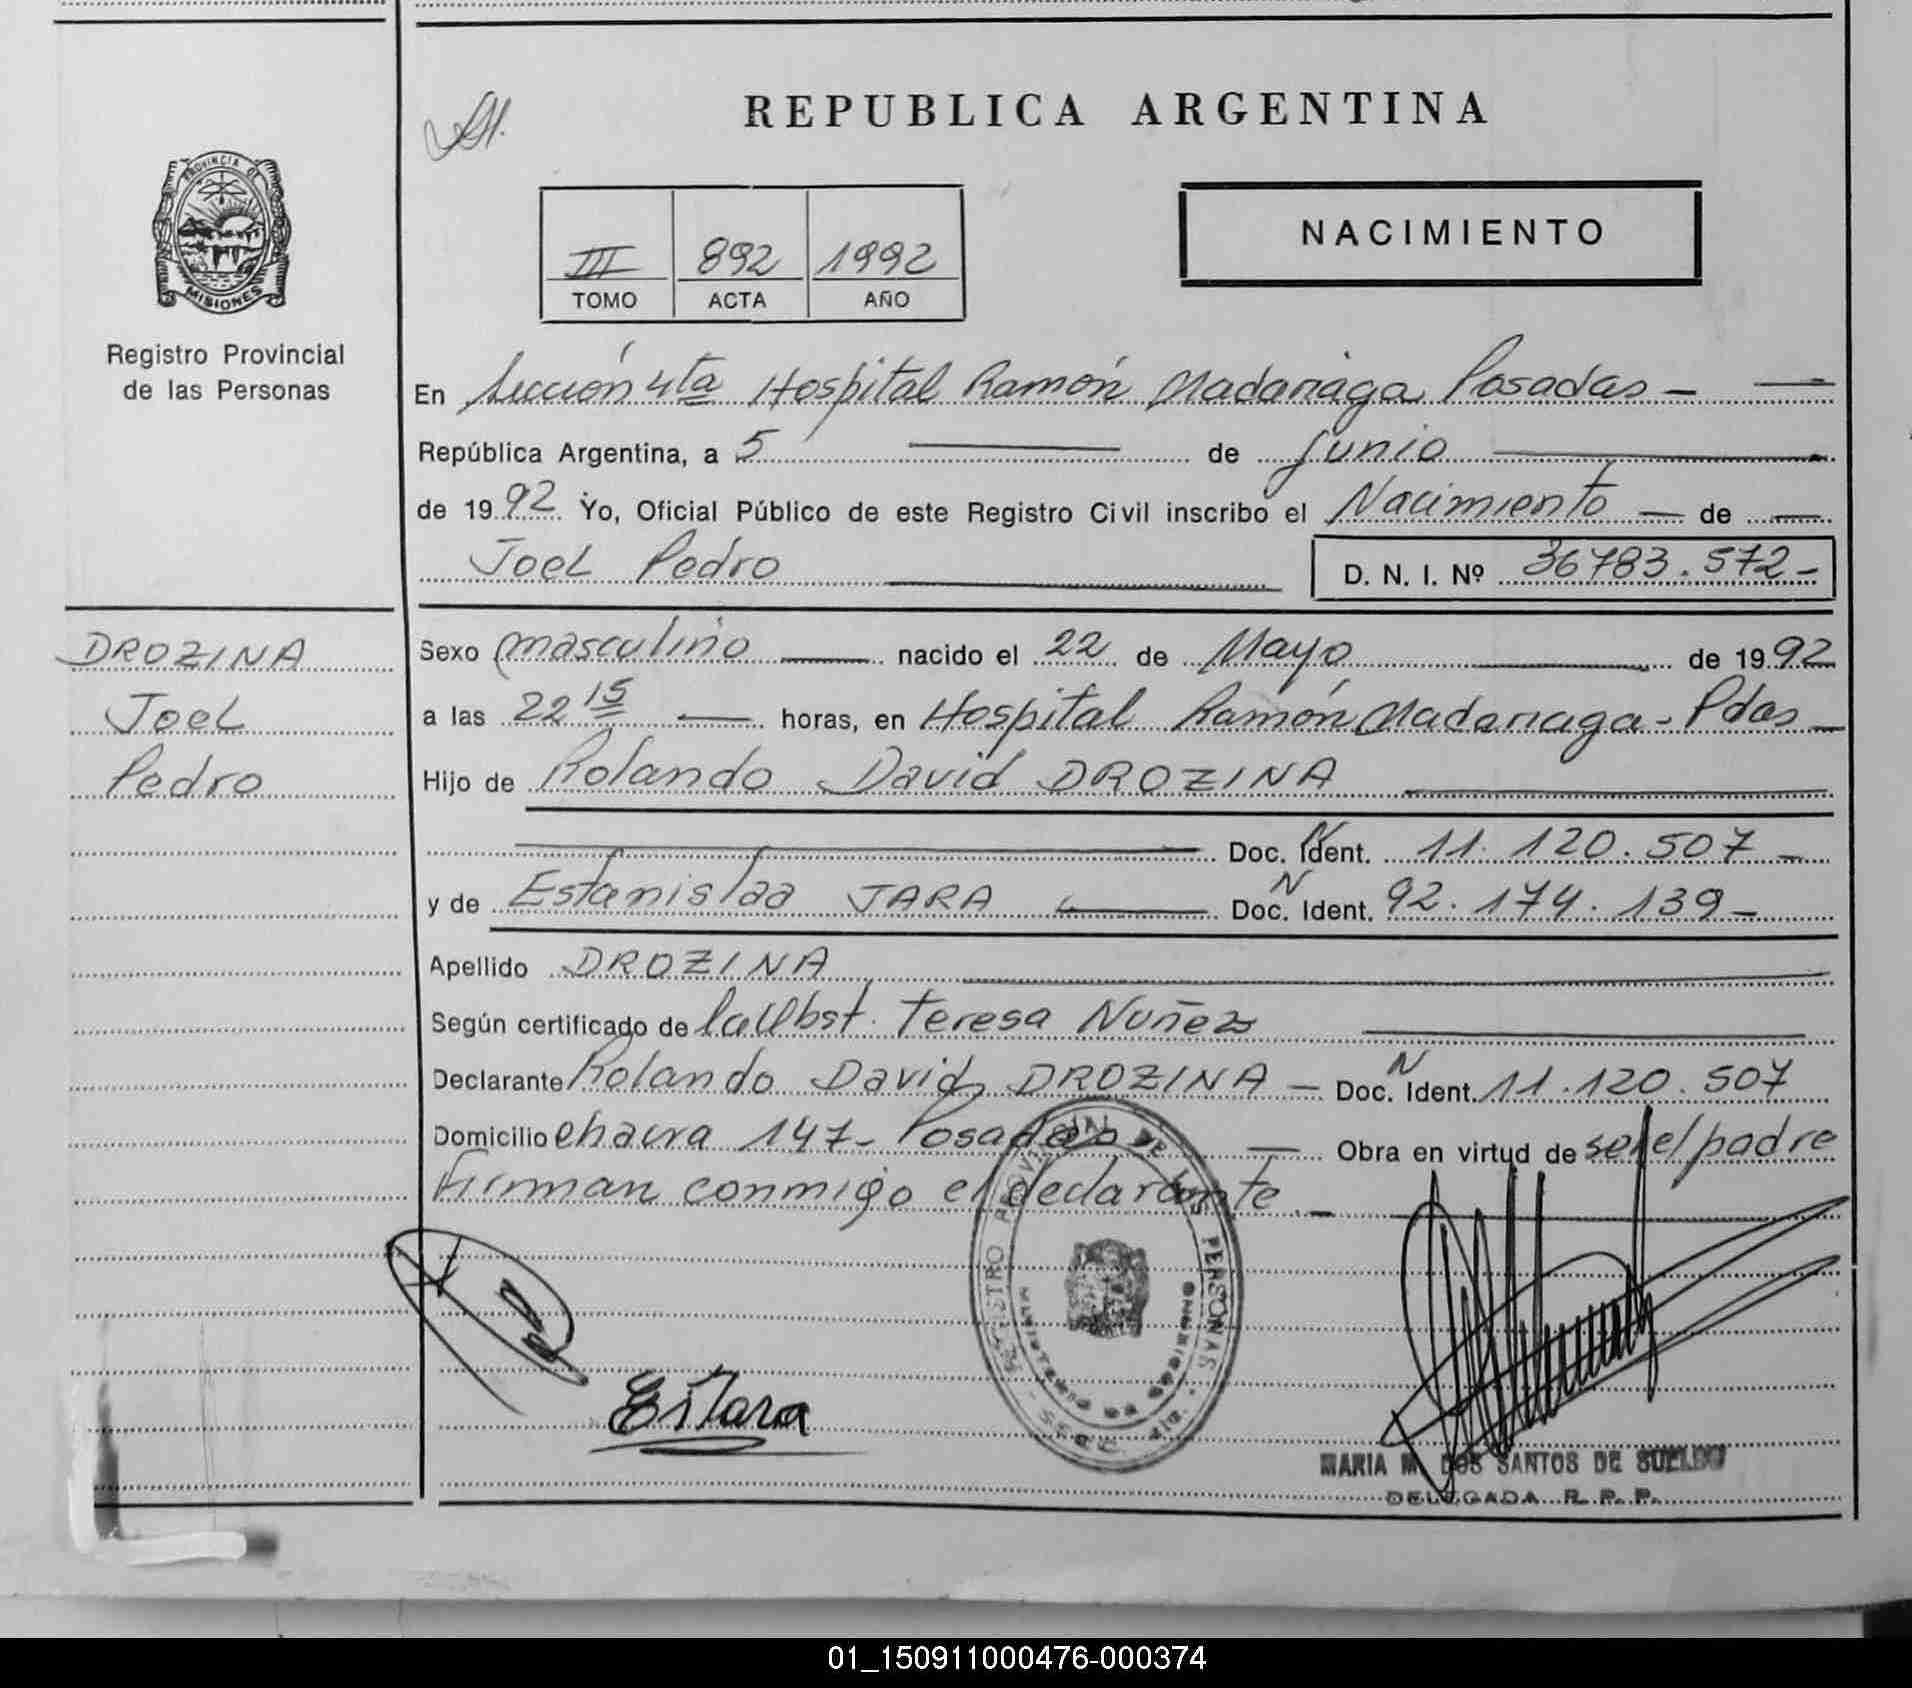 REPUBLICA ARGENTINA
PROVINCIA DE
MISIONES
Registro Provincial
de las Personas
III 892 1992
TOMO ACTA AÑO
NACIMIENTO
En Sección 4ta Hospital Ramón Madariaga Posadas —
República Argentina, a 5 de junio
de 1992 Yo, Oficial Público de este Registro Civil inscribo el Nacimiento — de —
Joel Pedro D. N. I. Nº 36783.572-
DROZINA
Joel
Pedro
Sexo masculino nacido el 22 de Mayo de 1992
a las 22 15 horas, en Hospital Ramón Madariaga - Pdas
Hijo de Rolando David DROZINA
Doc. N Ident. 11.120.507 -
y de Estanislaa JARA Doc. N Ident. 92.174.139 -
Apellido DROZINA
Según certificado de la Obst. Teresa Nuñez
Declarante Rolando David DROZINA — Doc. N Ident. 11.120.507
Domicilio chacra 147- Posadas — Obra en virtud de ser el padre
Firman conmigo el declarante . —
REGISTRO PROVINCIAL DE LAS PERSONAS
MINISTERIO DE GOBIERNO
EsJara
MARIA M. DOS SANTOS DE
DELEGADA R. P. P.
01_150911000476-000374